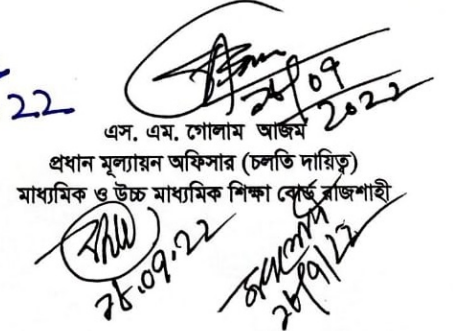 22
২৮/09
2022
এস. এম. গোলাম আজম
প্রধান মূল্যায়ন অফিসার (চলতি দায়িত্ব)
মাধ্যমিক ও উচ্চ মাধ্যমিক শিক্ষা বোর্ড রাজশাহী
২৮.09.22
২৮/9/22